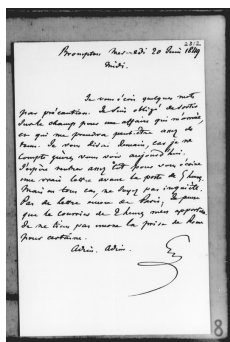 2312
Brompton Mercredi 20 Juin 1849
Midi.
Je vous écris quelques mots
par précaution. Je suis obligé de sortir
sur le champ pour une affaire qui m'arrive
et qui me prendra peut-être assez de
tems. Je vous dirai demain, car je ne
compte guères vous voir aujourd'hui.
J'espère rentrer assez tôt pour vous écrire
une vraie lettre avant la poste de 5 heures.
Mais en tous cas, ne soyez pas inquiète.
Pas de lettre encore de Paris. Je pense
que le courrier de 2 heures m'en apportera.
Je ne tiens pas encore la prise de Rome
pour certaine.
Adieu. Adieu.
8